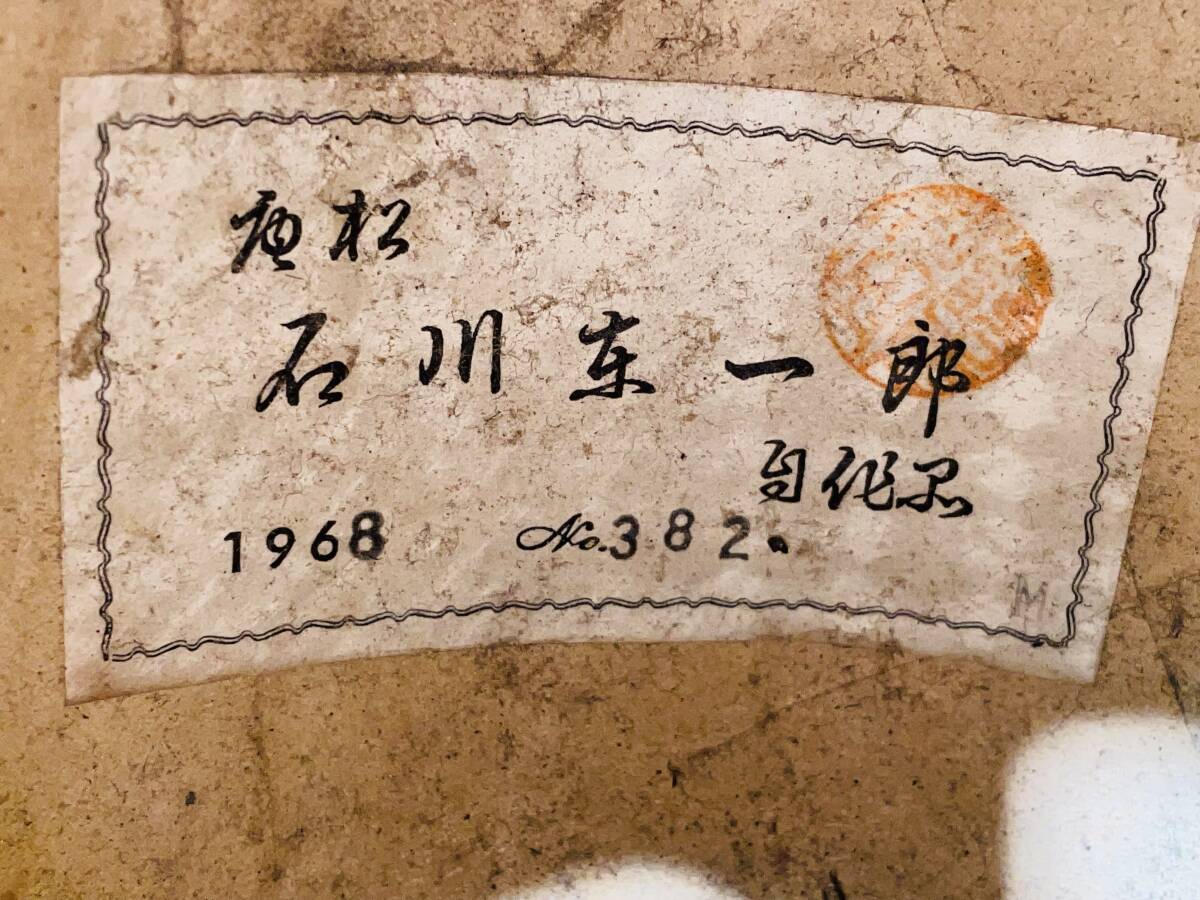 松
石川東一郎
自作品
1968 No.382
M